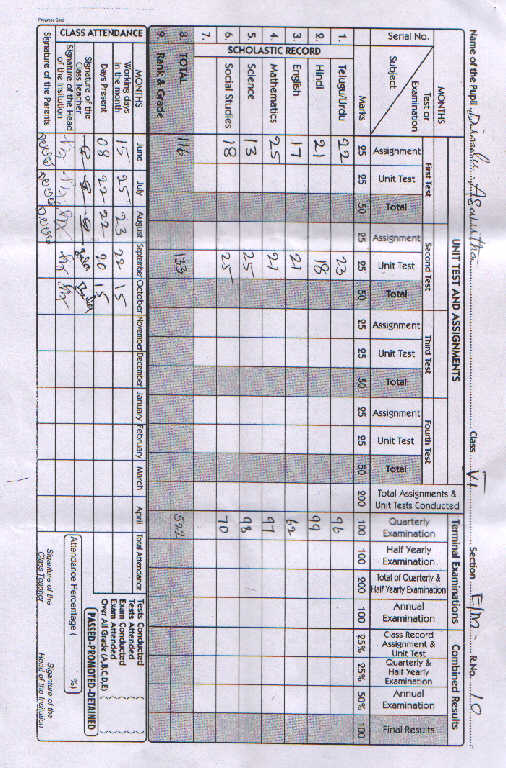 Name of the Pupil Class VI Section E/M R.No. 10
MONTHS UNIT TEST AND ASSIGNMENTS Terminal Examinations Combined Results
Serial No. Subject Test or Examination First Test Second Test Third Test Fourth Test
Assignment Unit Test Total Assignment Unit Test Total Assignment Unit Test Total Assignment Unit Test Total Total Assignments & Unit Tests Conducted Quarterly Examination Half Yearly Examination Total of Quarterly & Half Yearly Examination Annual Examination Class Record Assignment & Unit Test Quarterly & Half Yearly Examination Annual Examination Final Results
Marks 25 25 50 25 25 50 25 25 50 25 25 50 200 100 100 200 100 25% 25% 50% 100
SCHOLASTIC RECORD
1. Telugu/Urdu 22 23 96
2. Hindi 21 18 99
3. English 17 21 62
4. Mathematics 25 21 97
5. Science 13 25 98
6. Social Studies 18 25 70
7.
8 TOTAL 116 133 522
9. Rank & Grade
CLASS ATTENDANCE
MONTHS June July August September October November December January February March April Total Attendance
Working days in the month 15 25 23 22 15
Days Present 08 22 22 20 15
Signature of the Class Teacher
Signature of the Head of the Institution
Signature of the Parents
Tests Conducted
Tests Attended
Exam Conducted
Exam Attended
Over All Grade (A,B,C,D,E)
PASSED-PROMOTED-DETAINED
Attendance Percentage ( %)
Signature of the Class Teacher
Signature of the Head of the Institution